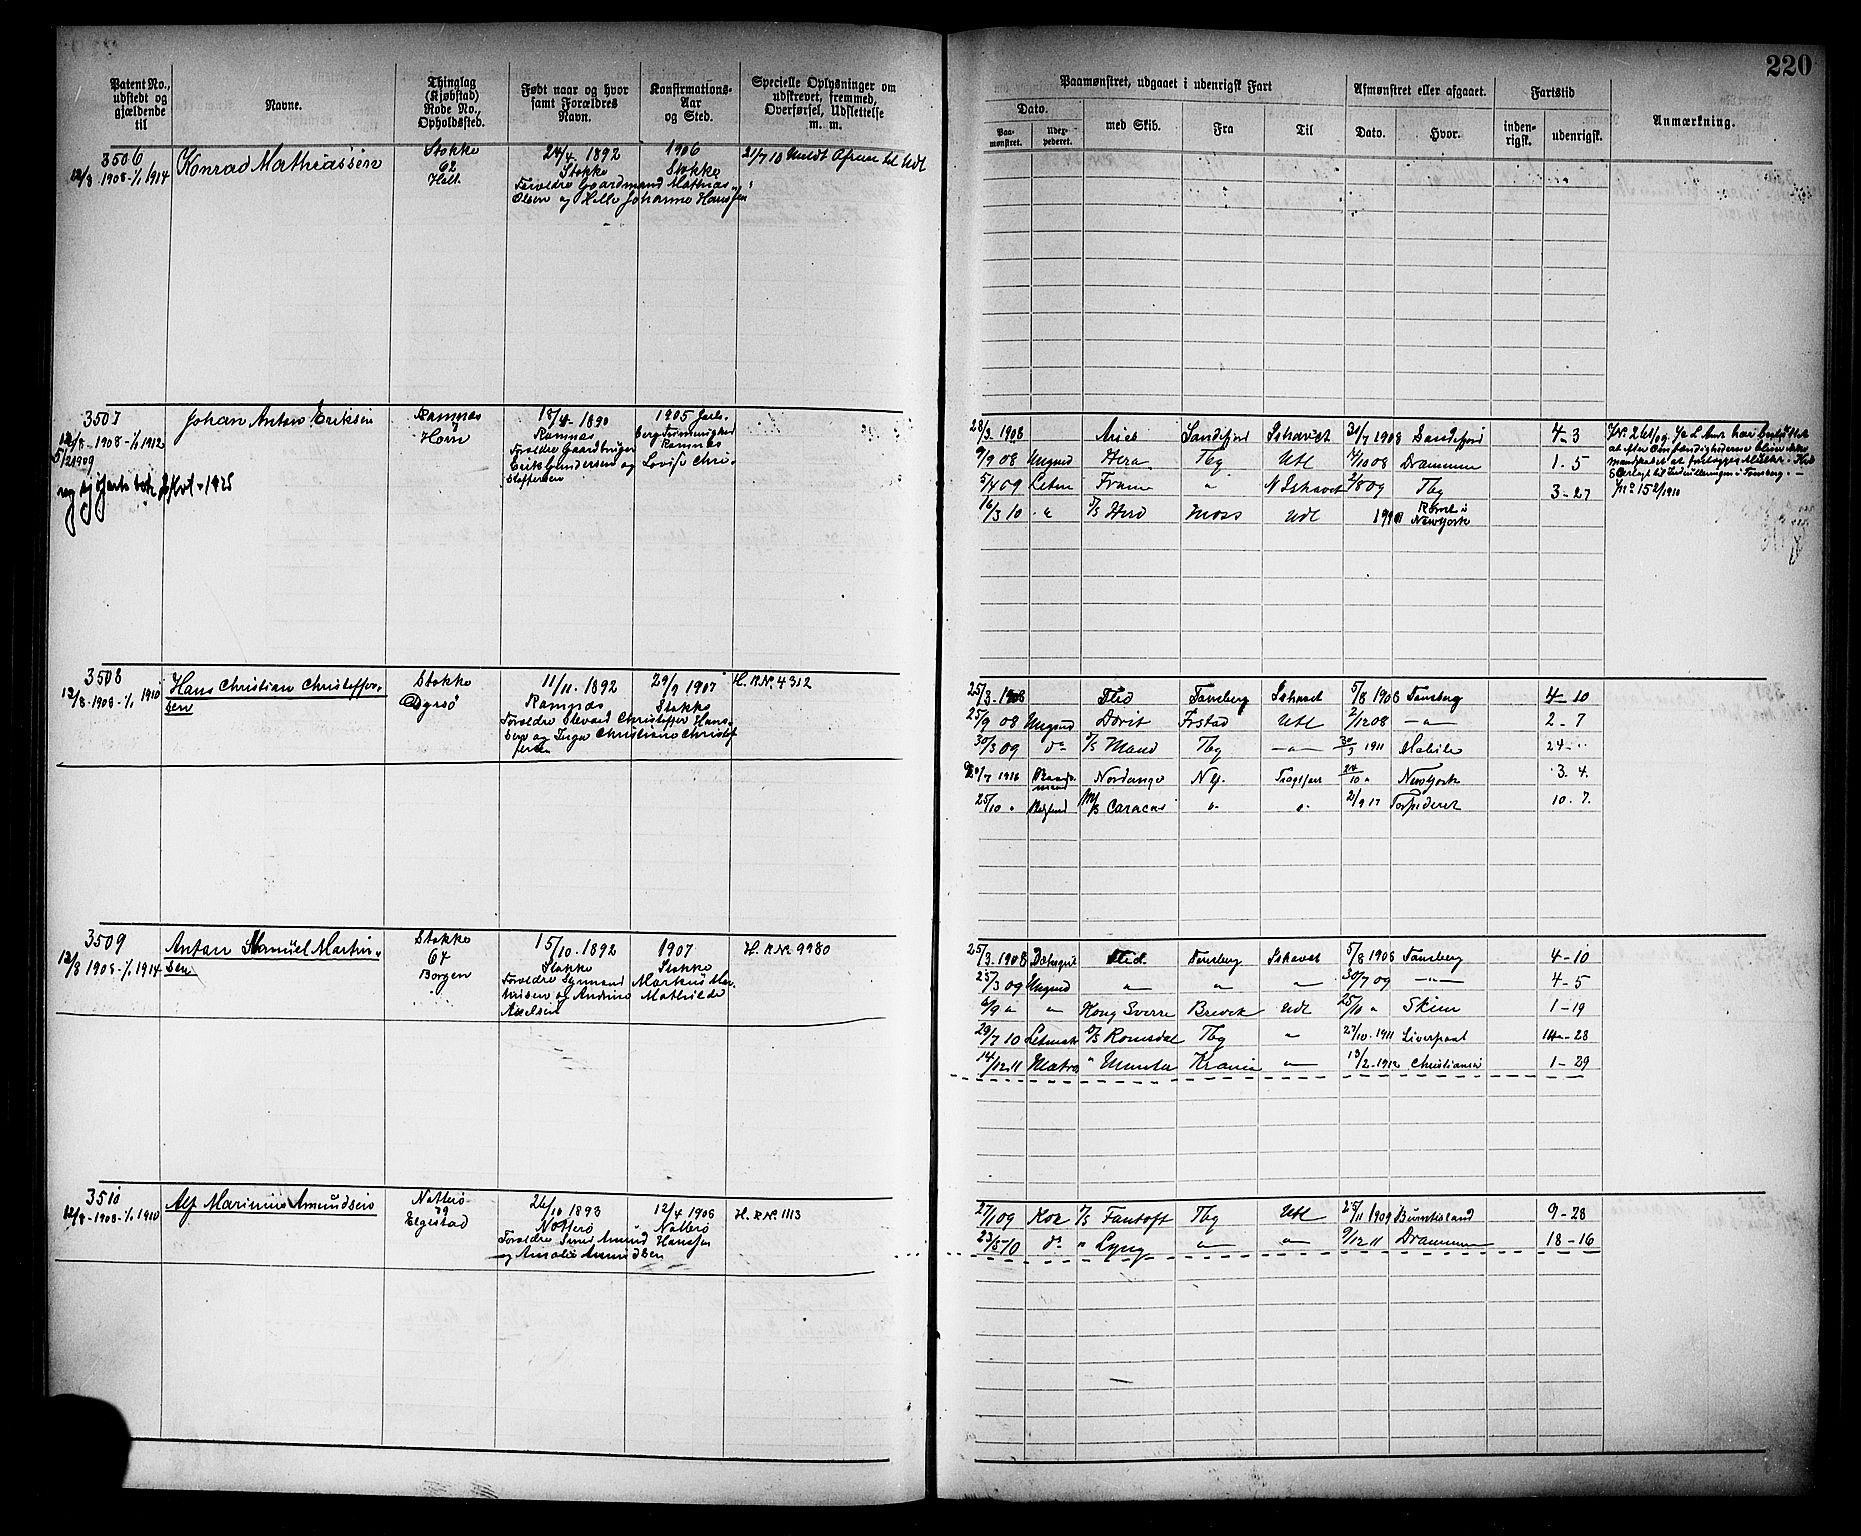 220
Patent No., udstedt og gjældende til
Navne.
Thinglag (Kjøbstad) Rode No., Opholdssted.
Født naar og hvor samt Forældres Navn.
Konfirmations-Aar og Sted.
Specielle Oplysninger om udskrevet, fremmed, Overførsel, Udslettelse m. m.
Paamønstret, udgaaet i udenrigsk Fart
Dato.
Paamønstret.
med Skib.
Fra
Til
Afmønstret eller afgaaet.
Dato.
Hvor.
Fartstid
indenrigsk.
udenrigsk.
Anmærkning.
3506
12/8 1908-1/1 1914
Konrad Mathiassen
Stokke
62
24/4 1892
Stokke
Forældre Gaardmand Mathias
Olsen og Helle Johanne Hanssen
1906
Stokke
21/7 10
3507
12/8-1908-1/1 1912
5/2 1909
Johan Anton Eriksen
Ramnæs
Horn
18/4-1890
Ramnæs
Forældre Gaardbruger
Erik Gundersen og Lovise Chri-
stoffersen
1905 Jarls-
berg
Ramnæs
28/3 1908 Aries Sandefjord Ishavet 31/7 1908 Sandefjord 4-3
9/9 08 Ungmd Hera Tbg Utl 14/10 08 Drammen 1-5
5/4 09 Letm Fram " N Ishavet 2/8 09 Tbg 3-27
16/3 10 " S/S Herd Moss Udl Rømt i
New York
No 152/1910
3508
12/8-1908-1/1 1910
Hans Christian Christoffer-
sen
Stokke
11/11-1892
Ramnæs
Forældre Elevard Christoffer Hans-
sen og Inga Christiane Christof
fersen
29/9 1907
Stokke
H. R. No. 4312
25/3-1908 Flid Tønsberg Ishavet 5/8 1908 Tønsberg 4-10
25/9 08 Ungmd Dorit Frstad Utl 2/12 08 -"- 2-7
30/3 09 do S/S Maud Tbg -"- 30/3 1911 Mobile 24-"
7 1916 Nordanger N.Y. Fragtfart 24/10 " New York 3.4.
25/10 " M/S Caracas " " 21/9 17 Torpederet 10.7.
3509
12/8 1908-1/1 1914
Anton Samuel Martin-
sen
Stokke
64
Borgen
15/10-1892
Stokke
Forældre Sømand Markus Mar-
thisen og Andrine Mathilde
Axelsen
1907
Stokke
H. R. No. 9980
25/3-1908 Flid. Tønsberg Ishavet 5/8 1908 Tønsberg 4-10
25/3 09 Ungmd " " " 30/7 09 -"- 4-5
6/9 " " Kong Sverre Brevik Udl 25/10 " Skien 1-19
29/7 10 Letmatr S/S Romsdal Tbg " 27/10-1911 Liverpool 14-28
14/12 11 Matro " Munta Krania -"- 13/2-1912 Christiania 1-29
3510
12/8-1908-1/1 1910
Alf Marinius Amundsen
Nøtterø
79
Elgestad
26/10 1893
Nøtterø
Forældre Smed Amund Hanssen
og Amalie Amundsen
12/4 1908
Nøtterø
H. R. No. 1113
27/1 09 Kok S/S Fantoft Tbg Utl 25/11 1909 Burntisland 9-28
23/5 10 do " Lyng -"- " 9/12 11 Drammen 18-16